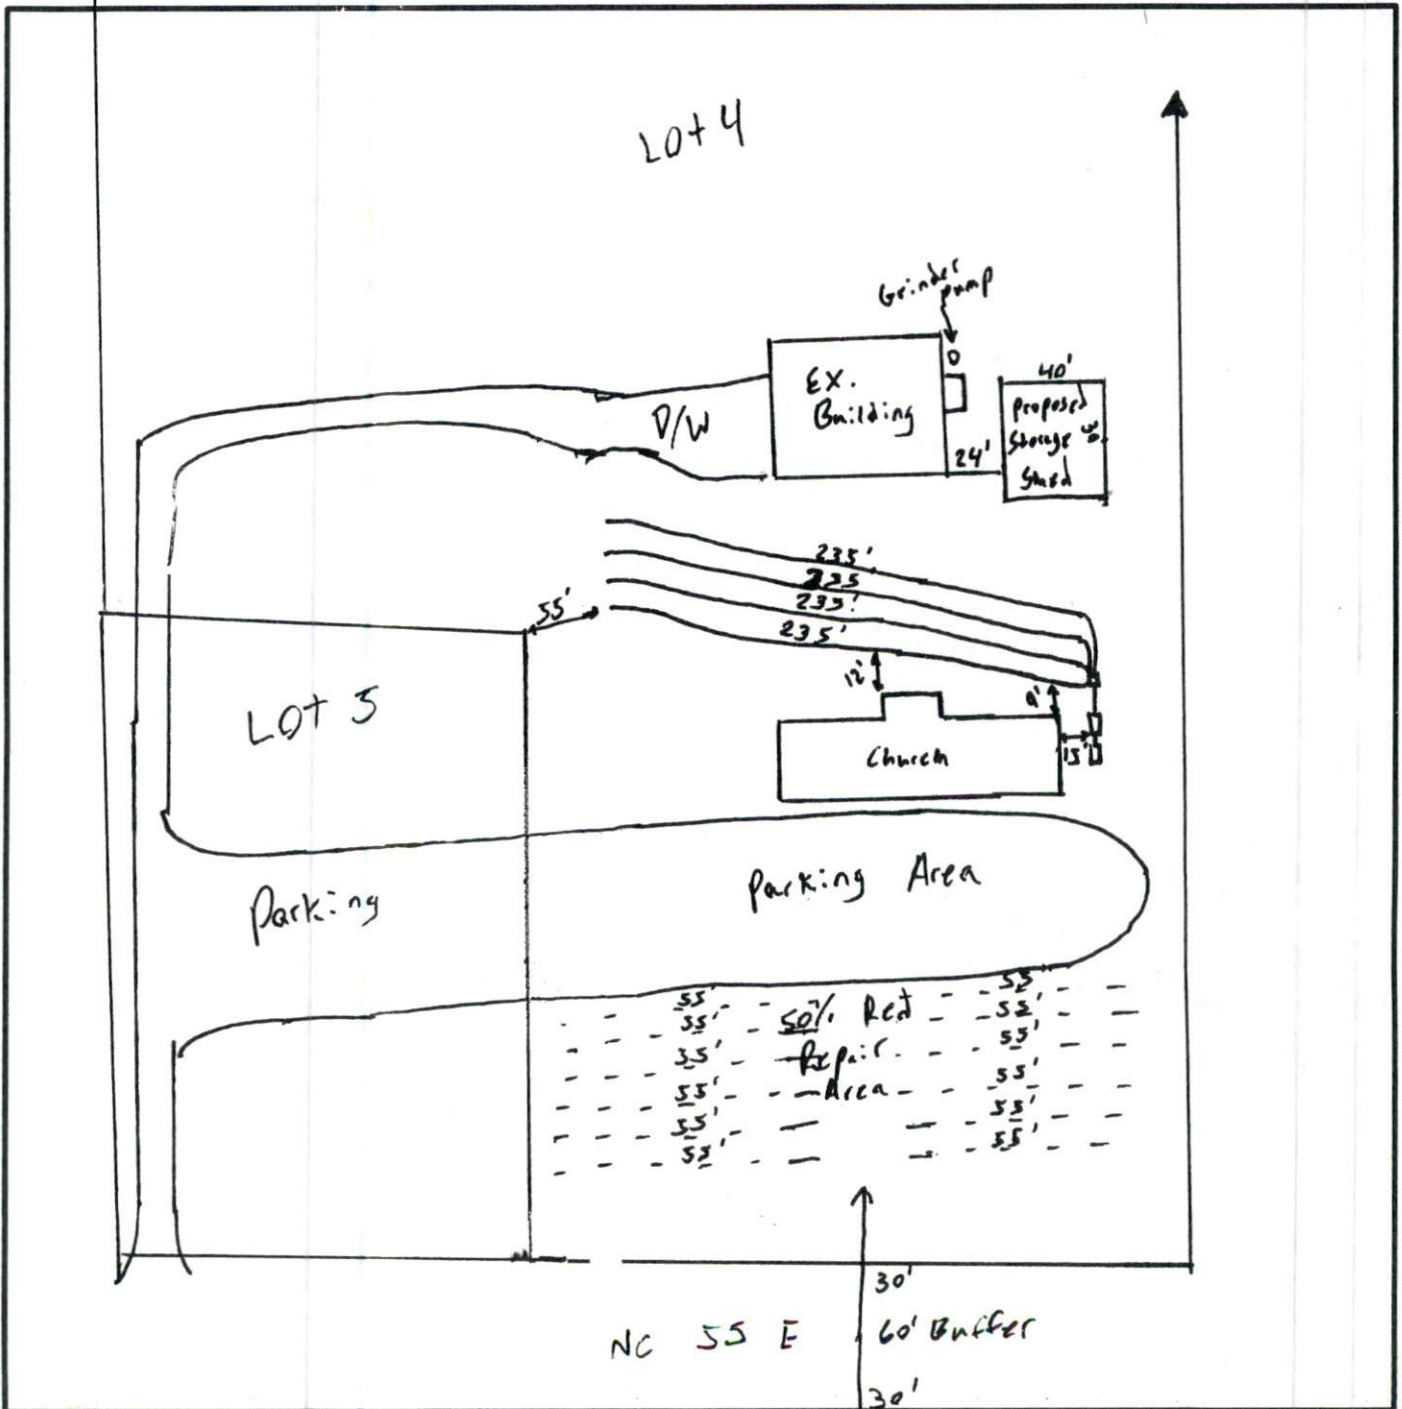 Lot 4
Grinder
pump
EX.
Building
D/W
40'
proposed
Storage
Shed
24'
235'
235
235'
235'
55'
12'
9'
15'
Church
Lot 5
Parking
Parking Area
55'
55'
55'
55'
55'
55'
50% Red
Repair
Area
55'
55'
55'
55'
55'
55'
30'
NC 55 E
60' Buffer
30'